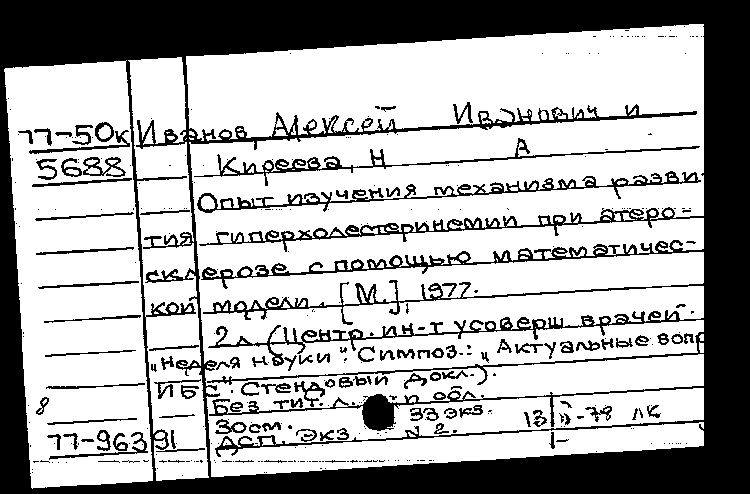 77-50к Иванов, Алексей Иванович и
5688 Киреева, Н А
Опыт изучения механизма разви
тия гиперхолестеринемии при атеро-
склерозе с помощью математичес-
кой модели. [М.], 1977.
2 л. (Центр. ин-т усоверш. врачей.
„Неделя науки". Симпоз.: „Актуальные вопр
ИБС" Стендовый докл.).
8 Без тит. л. п обл.
30см. 33 экз.
77-96391 ДСП. Экз. N 2. 13 II-78 ЛК